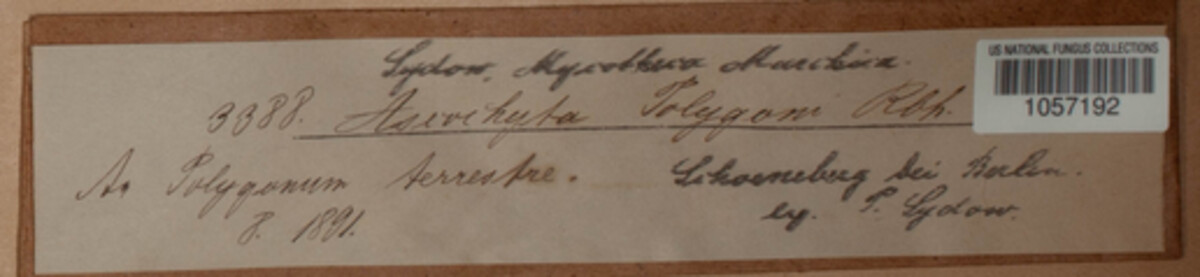 Sydow, Mycotheca Marchica.
3388. Ascochyta Polygoni Rbh.
An Polygonum terrestre. Schoeneberg bei Berlin.
8. 1891. leg. P. Sydow.
US NATIONAL FUNGUS COLLECTIONS
1057192